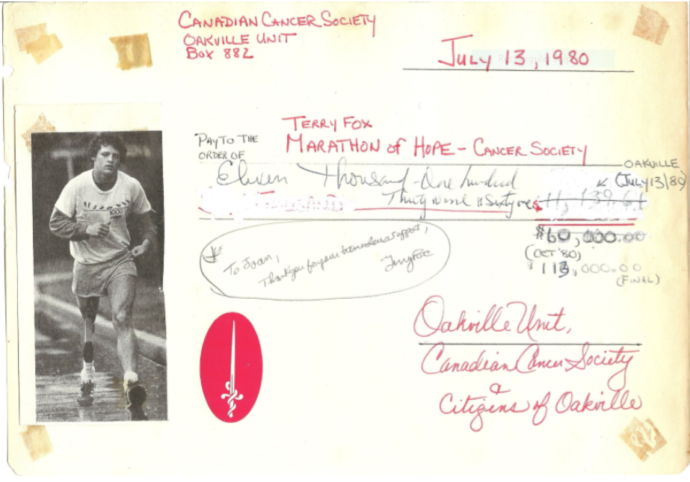 CANADIAN CANCER SOCIETY
OAKVILLE UNIT
BOX 882
JULY 13, 1980
TERRY FOX
PAY TO THE
ORDER OF
MARATHON OF HOPE - CANCER SOCIETY
OAKVILLE
(JULY 13/80)
Eleven Thousand - One hundred
Thirty nine & Sixty one
11,139.61
$60,000.00
(OCT '80)
$113,000.00
(FINAL)
To Joan,
Thank you for your tremendous support,
Terry Fox
Oakville Unit,
Canadian Cancer Society
&
Citizens of Oakville